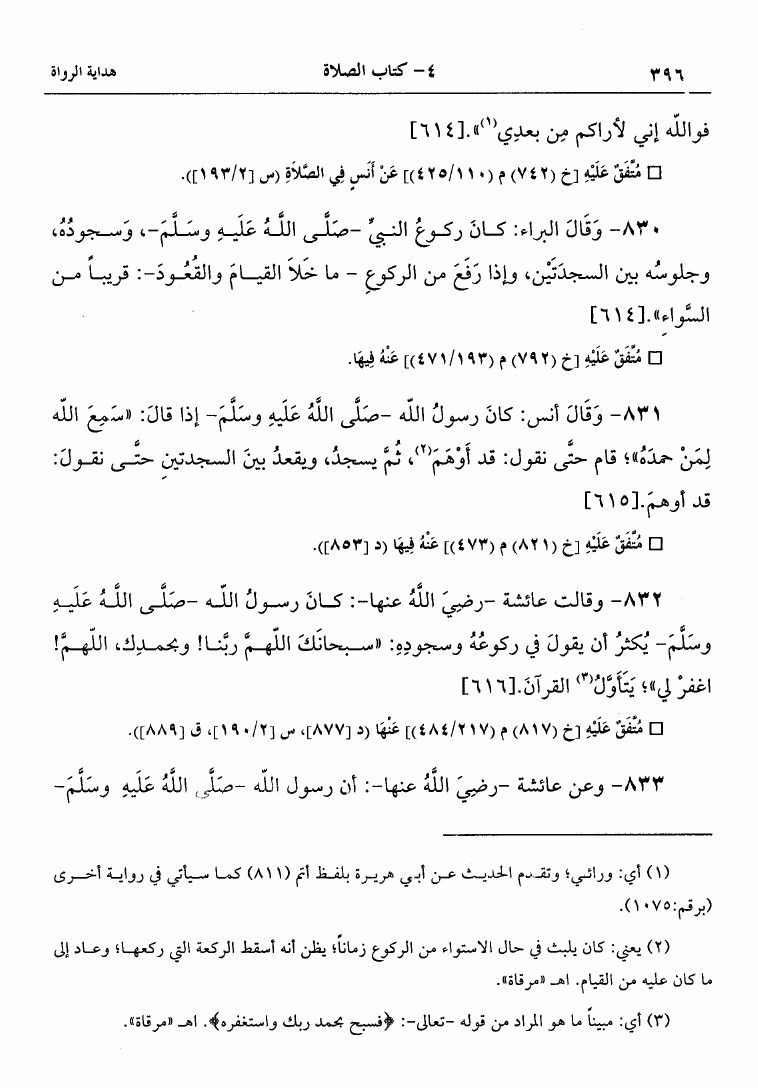 ٣٩٦ ٤- كتاب الصلاة هداية الرواة
فوالله إني لأراكم مِن بعدِي(١)».[٦١٤]
□ مُتَّفَقٌ عَلَيْهِ [خ (٧٤٢) م (٤٢٥/١١٠)] عَنْ أَنَسٍ فِي الصَّلَاةِ (س [١٩٣/٢]).
٨٣٠- وَقَالَ البراء: كـانَ ركـوعُ النبيِّ -صَلَّـى اللَّـهُ عَلَيْـهِ وسَـلَّمَ-، وَسـجودُهُ،
وجلوسُه بين السجدَتَيْن، وإذا رَفَعَ من الركوعِ - ما خَلَا القيـامَ والقُعُـودَ-: قريبـاً مـن
السَّواءِ».[٦١٤]
□ مُتَّفَقٌ عَلَيْهِ [خ (٧٩٢) م (٤٧١/١٩٣)] عَنْهُ فِيهَا.
٨٣١- وَقَالَ أنس: كانَ رسولُ الله -صَلَّى اللَّهُ عَلَيهِ وسَلَّمَ- إذا قالَ: «سَمِعَ الله
لِمَنْ حمدَهُ»؛ قام حتَّى نقول: قد أَوْهَمَ(٢)، ثُمَّ يسجدُ، ويقعدُ بينَ السجدتينِ حتَّـى نقـولَ:
قد أوهمَ.[٦١٥]
□ مُتَّفَقٌ عَلَيْهِ [خ (٨٢١) م (٤٧٣)] عَنْهُ فِيهَا (د [٨٥٣]).
٨٣٢- وقالت عائشة -رضيَ اللَّهُ عنها-: كـانَ رسـولُ اللّـه -صَلَّـى اللَّـهُ عَلَيـهِ
وسَلَّمَ- يُكثرُ أن يقولَ في ركوعُهُ وسجودِهِ: «سـبحانَكَ اللّهـمَّ ربَّنـا! وبحمـدِك، اللّهـمَّ!
اغفرْ لي»؛ يَتَأَوَّلُ(٣) القرآنَ.[٦١٦]
□ مُتَّفَقٌ عَلَيْهِ [خ (٨١٧) م (٤٨٤/٢١٧)] عَنْهَا (د [٨٧٧]، س [١٩٠/٢]، ق [٨٨٩]).
٨٣٣- وعن عائشة -رضيَ اللَّهُ عنها-: أن رسول الله -صَلَّى اللَّهُ عَلَيْهِ وسَلَّمَ-
(١) أي: ورائـي؛ وتقـدم الحديـث عـن أبـي هريـرة بلفـظ أتم (٨١١) كمـا سـيأتي في روايـة أخـرى
(برقم:١٠٧٥).
(٢) يعني: كان يلبث في حال الاستواء من الركوع زماناً؛ يظن أنه أسقط الركعة التي ركعهـا؛ وعـاد إلى
ما كان عليه من القيام. اهـ «مرقاة».
(٣) أي: مبيناً ما هو المراد من قوله -تعالى-: ﴿فسبح بحمد ربك واستغفره﴾. اهـ «مرقاة».